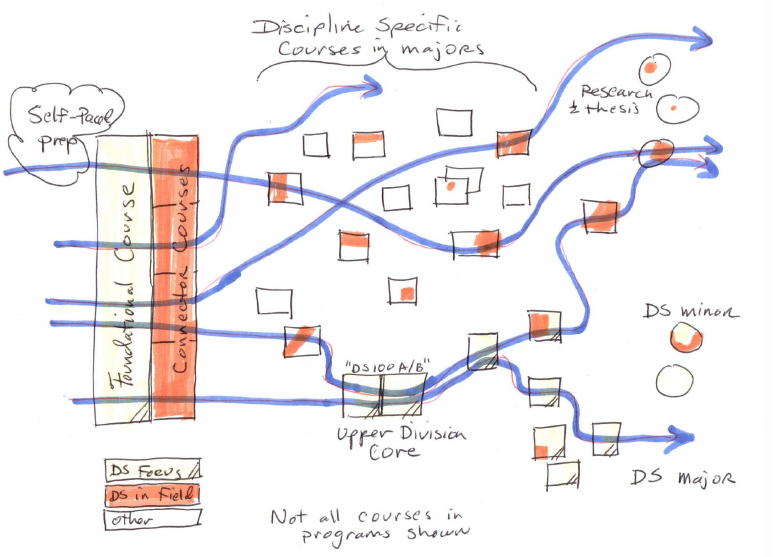 Discipline Specific
Courses in majors
Self-Paced
prep
Research
& thesis
Foundational Course
Connector Courses
DS minor
"DS100A/B"
Upper Division
Core
DS major
DS Focus
DS in Field
other
Not all courses in
programs shown